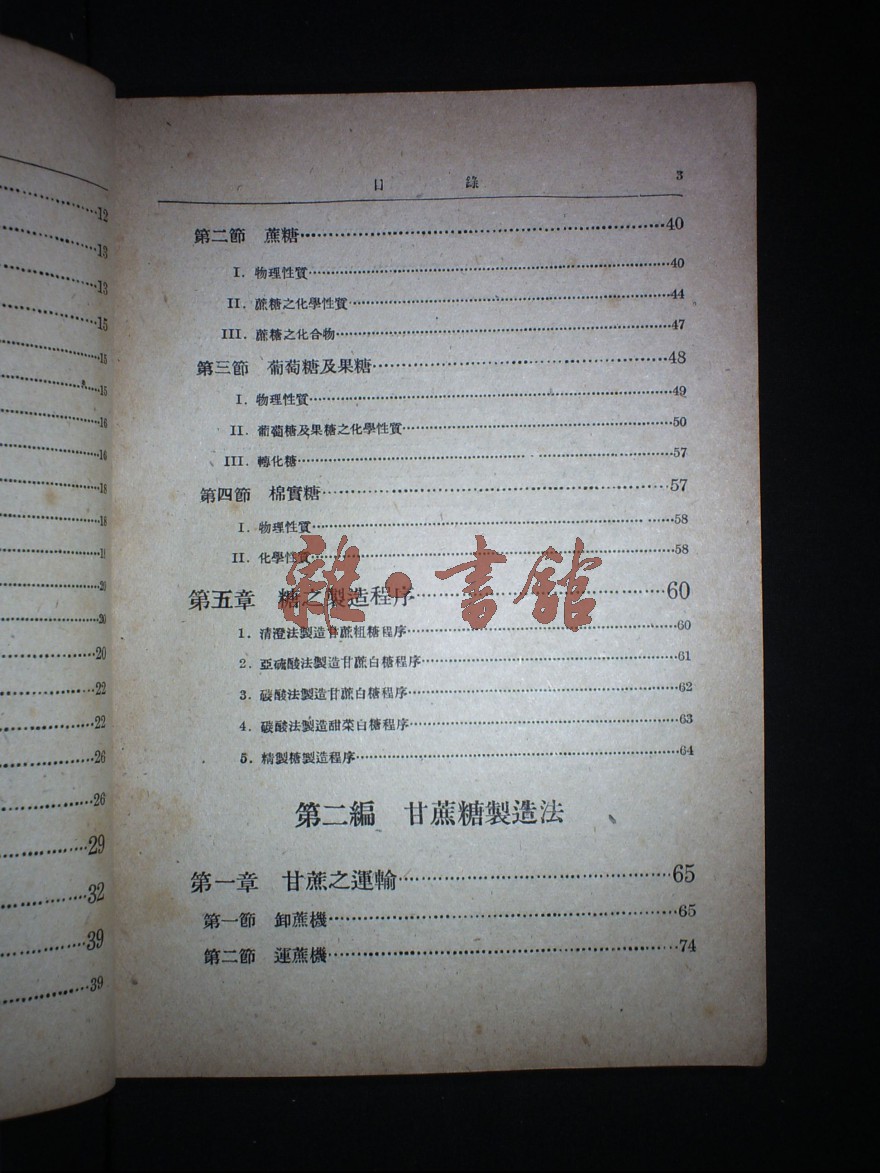 12
13
13
15
15
15
16
16
18
18
20
20
20
22
22
26
26
29
32
39
39
目 錄 3
第二節 蔗糖 40
I. 物理性質 40
II. 蔗糖之化學性質 44
III. 蔗糖之化合物 47
第三節 葡萄糖及果糖 48
I. 物理性質 49
II. 葡萄糖及果糖之化學性質 50
III. 轉化糖 57
第四節 棉實糖 57
I. 物理性質 58
II. 化學性質 58
第五章 糖之製造程序 60
1. 清澄法製造甘蔗粗糖程序 60
2. 亞硫酸法製造甘蔗白糖程序 61
3. 碳酸法製造甘蔗白糖程序 62
4. 碳酸法製造甜菜白糖程序 63
5. 精製糖製造程序 64
第二編 甘蔗糖製造法
第一章 甘蔗之運輸 65
第一節 卸蔗機 65
第二節 運蔗機 74
書館